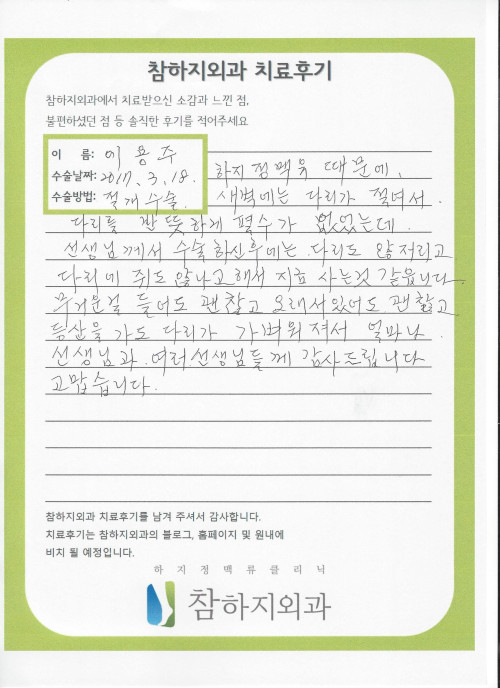 참하지외과 치료후기
참하지외과에서 치료받으신 소감과 느낀 점,
불편하셨던 점 등 솔직한 후기를 적어주세요
이 름: 이용주
수술날짜: 2017. 3. 18.
수술방법: 절개수술.
하지정맥유 때문에,
새벽에는 다리가 절여서.
다리를 반듯하게 펼수가 없었는데.
선생님께서 수술하신후에는 다리도 않저리고
다리에 쥐도 않나고 해서 지효 사는것 같읍니다
무거운걸 들어도 괜찮고 오래서있어도 괜찮고
등산을 가도 다리가 가벼워져서 얼마나.
선생님과. 여러선생님들께 감사드립니다
고맙습니다.
참하지외과 치료후기를 남겨 주셔서 감사합니다.
치료후기는 참하지외과의 블로그, 홈페이지 및 원내에
비치 될 예정입니다.
하지정맥류클리닉
참하지외과